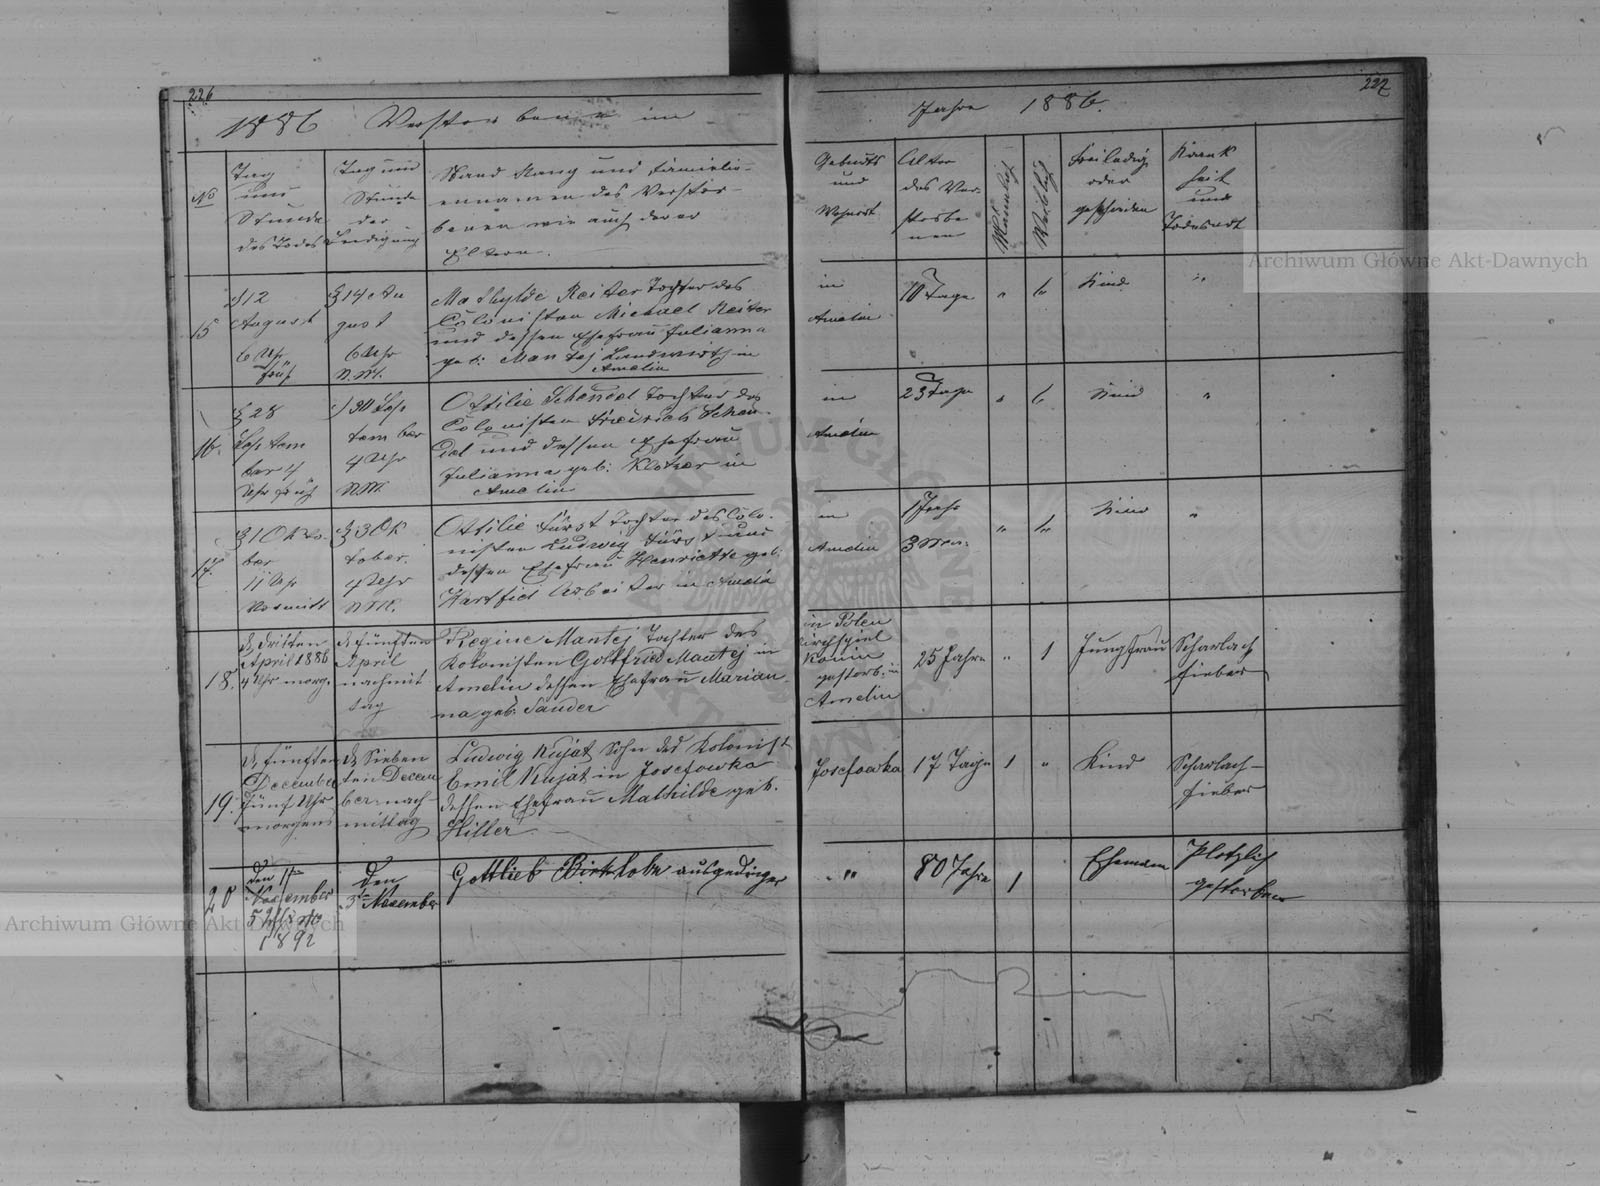 226
1886 Verstorbene im
Jahre 1886.
227
No
Tag
und
Stunde
des Todes
Tag und
Stunde
der
Beerdigung
Stand Rang und Familie-
ennamen des Verstor-
benen wie auch derer
Eltern.
Geburts
und
Wohnort
Alter
des Ver-
storbe
nen
Männlich
Weiblich
Frei ledig
oder
geschieden
Krank
heit
und
Todesart
15
12
August
6 Uhr
früh
14 Au
gust
6 Uhr
N.M.
Mathylde Reiter Tochter des
Colonisten Michael Reiter
und dessen Ehefrau Julianna
geb: Mantej Landwirth in
Amelin
in
Amelin
10 Tage
"
Kind
"
16.
28
Septem
ber 4
Uhr früh
30 Sep
tember
4 Uhr
N.M.
Ottilie Schendel Tochter des
Colonisten Friedrich Schen-
del und dessen Ehefrau
Julianna geb: Klotzer in
Amelin
in
Amelin
23 Tage
"
Kind
"
17.
1 Octo-
ber
11 Uhr
Vormitt
3 Ok
tober.
4 Uhr
N.M.
Ottilie Fürst Tochter des Colo-
nisten Ludwig Fürst und
dessen Ehefrau Henriette geb:
Hartfiel Arbeiter in Amelin
in
Amelin
1 Jahr
3 Mon.
"
Kind
"
18.
d. dritten
April 1886
4 Uhr morg.
d. fünften
April
nachmit
tag
Regine Mantej Tochter des
Kolonisten Gottfried Mantej in
Amelin dessen Ehefrau Marian
na geb: Sander
in Polen
Kirchspiel
Konin
gestorb. in
Amelin
25 Jahre
"
1
Jungfrau
Scharlach
fieber
19.
d. fünften
December
fünf Uhr
morgens
d. Sieben
ten Decem
ber nach-
mittag
Ludwig Kujat Sohn des Kolonist
Emil Kujat in Josefowka
dessen Ehefrau Mathilde geb.
Hiller
Josefowka
17 Tage
1
"
Kind
Scharlach-
fieber
20
den 1ten
November
5 Uhr
1892
den
3ten November
Gottlieb Birkholz ausgedinger
"
80 Jahre
1
Ehemann
Plotzlich
gestorben
Archiwum Główne Akt Dawnych
Archiwum Główne Akt Dawnych
ARCHIWUM GŁÓWNE AKT DAWNYCH